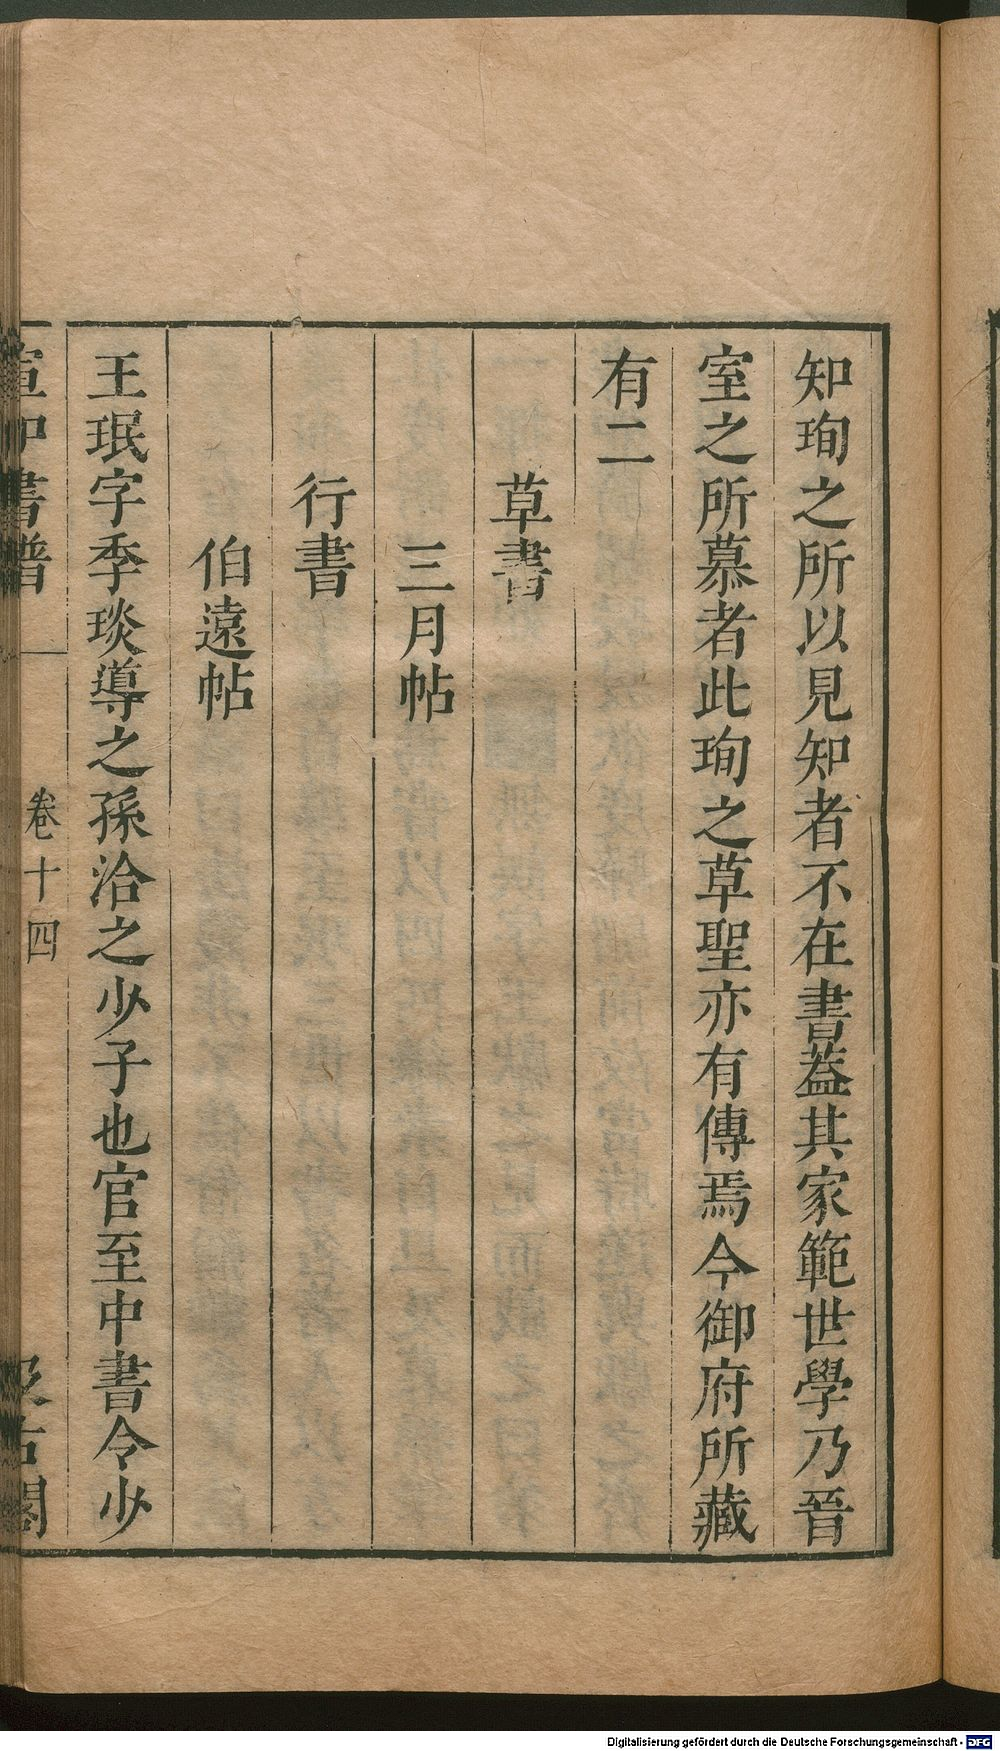 知珣之所以見知者不在書葢其家範世學乃晉
室之所慕者此珣之草聖亦有傳焉今御府所藏
有二
草書
三月帖
行書
伯遠帖
王珉字季琰導之孫洽之少子也官至中書令少
宣和書譜 卷十四 汲古閣
Digitalisierung gefördert durch die Deutsche Forschungsgemeinschaft - DFG